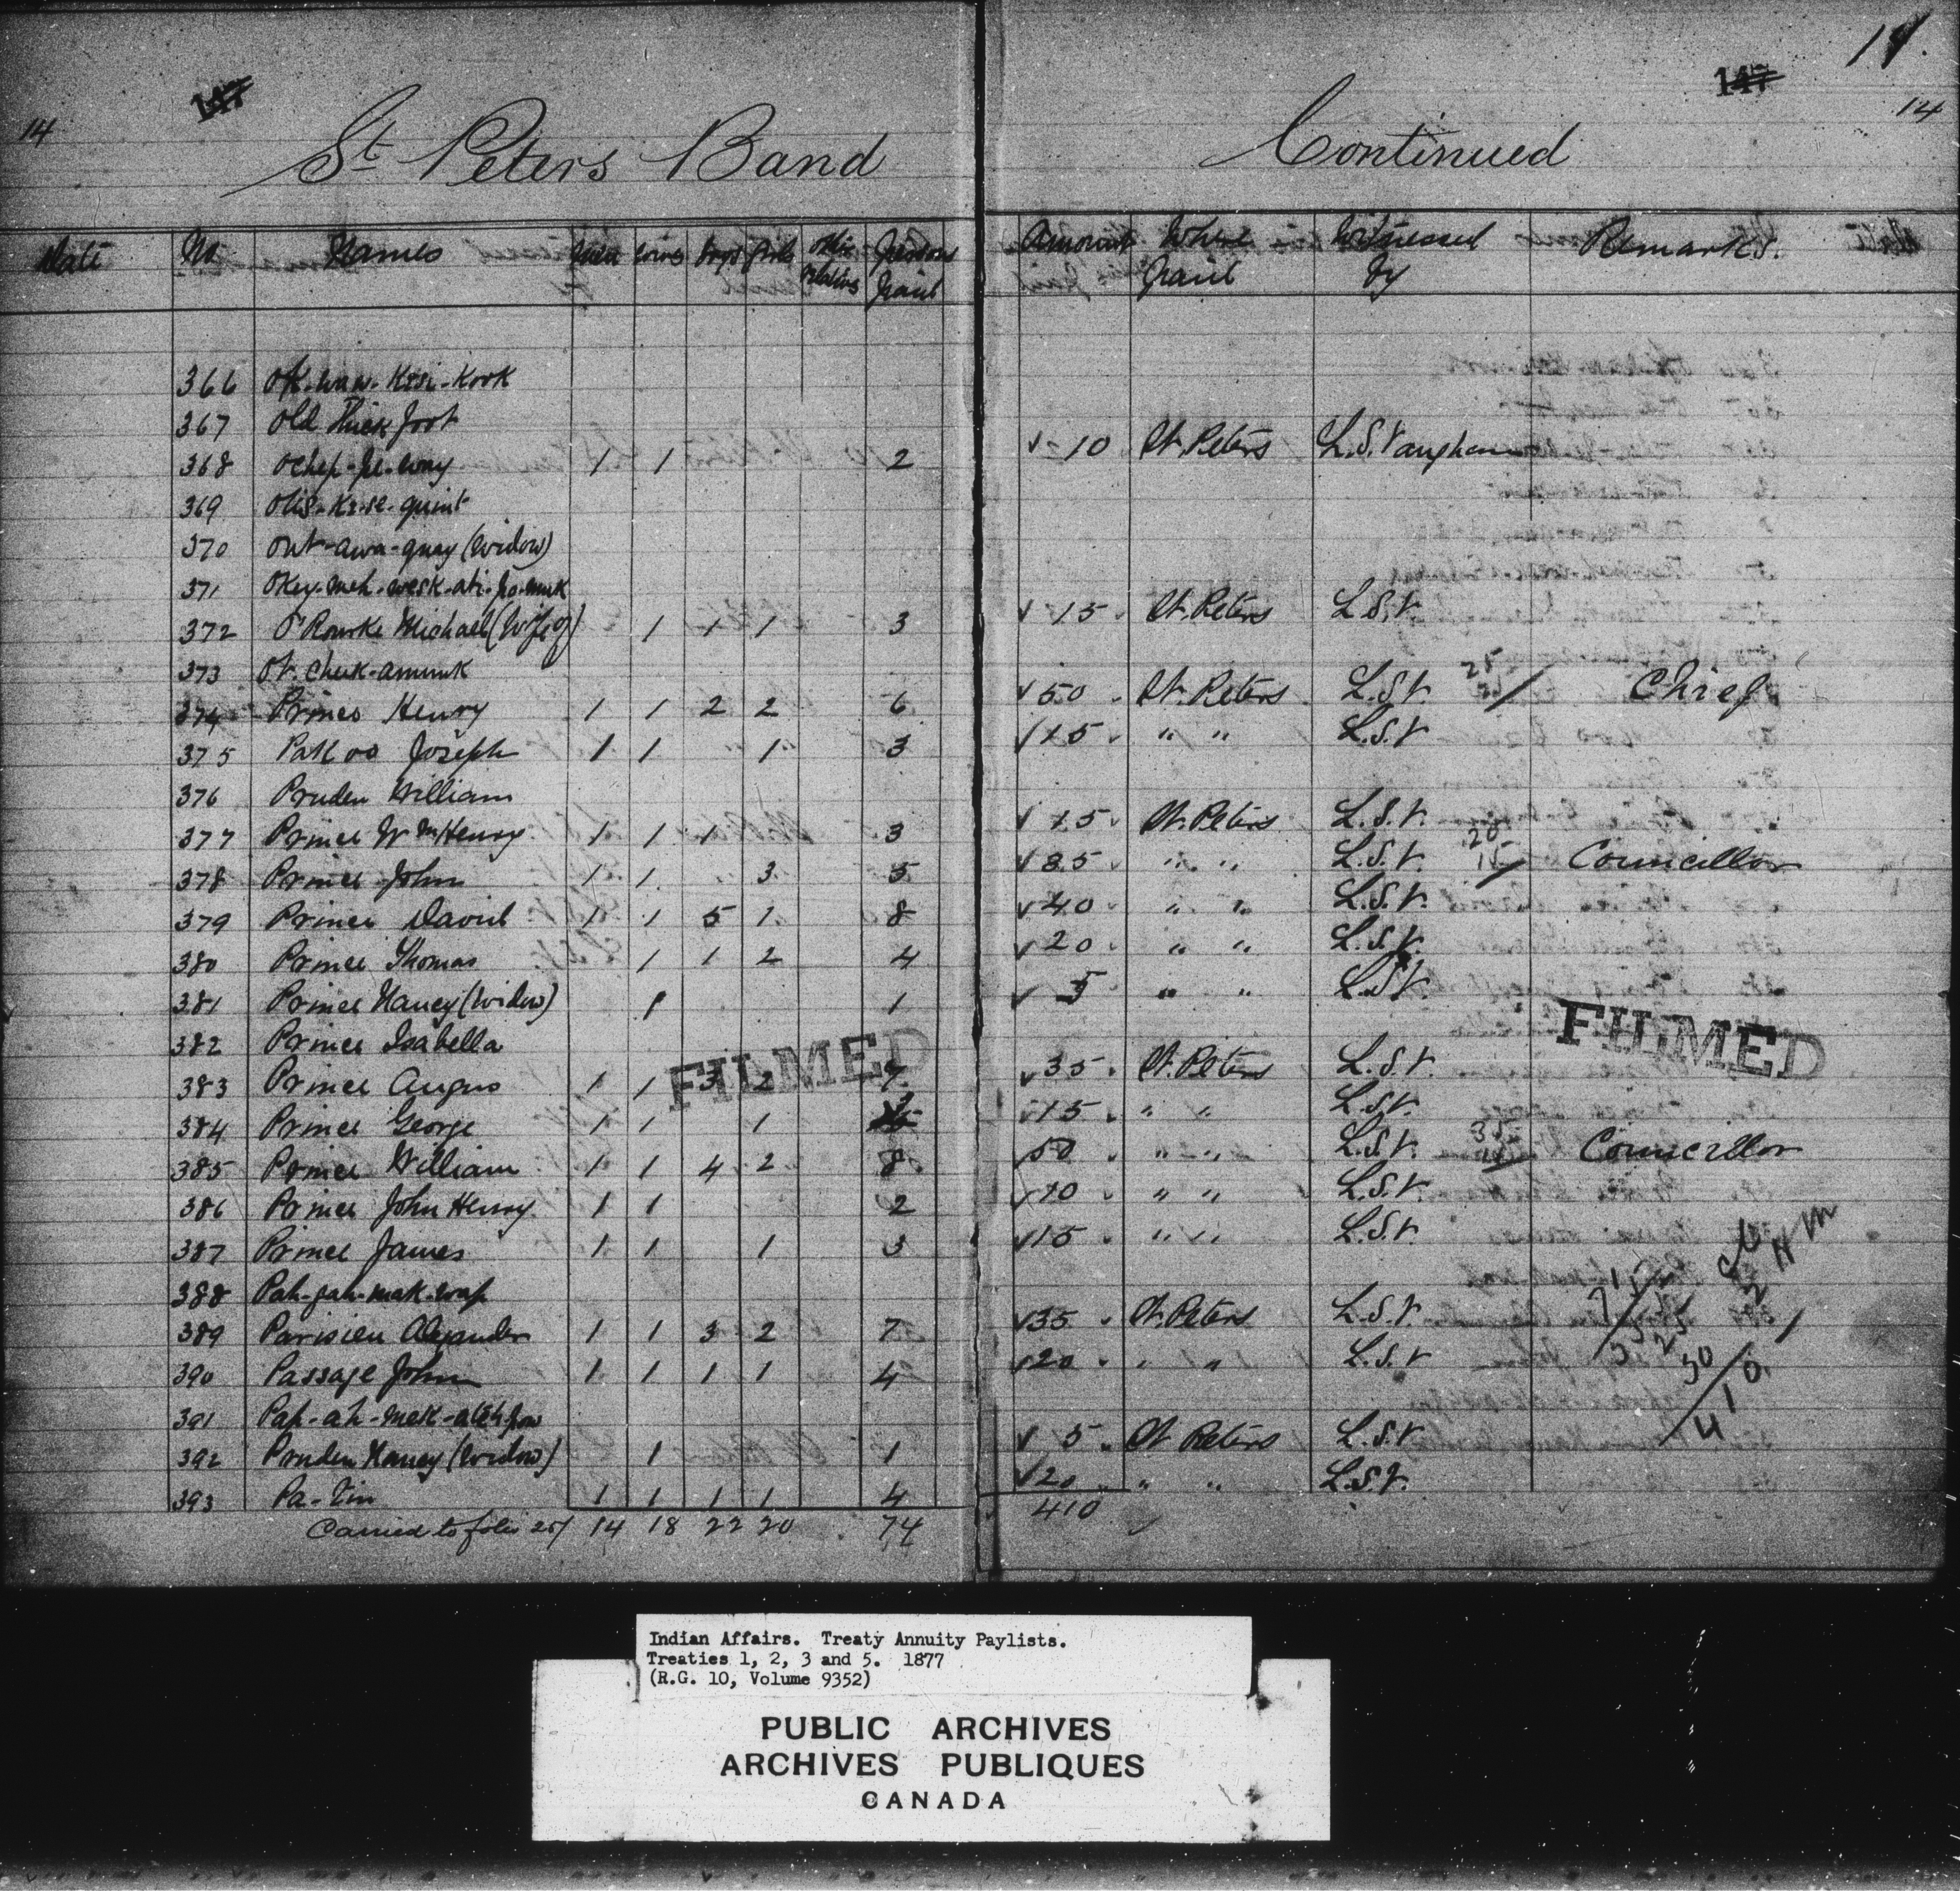 14 147 147 14 14
St Peters Band Continued
Date No Names Men Wives Boys Girls Other relatives Persons Paid Amount Where Paid Witnessed by Remarks.
366
367 Old Thick foot
368 Ochep-pe-way 1 1 2 √ 10 St. Peters L.S. Vaughan
369
370 Out-awa-quay (Widow)
371
372 O'Rourke Michael (Wife of) 1 1 1 3 √ 15 St. Peters L.S.V.
373 Ot. Chuk-amunk
374 Prince Henry 1 1 2 2 6 √ 50 St. Peters L.S.V. 25 25 / Chief
375 Pakoo Joseph 1 1 " 1 3 √ 15 " " L.S.V
376 Pruden William
377 Prince Wm Henry 1 1 1 3 √ 15 St. Peters L.S.V.
378 Prince John 1 1 " 3 5 √ 25 " " L.S.V. 20 15 / Councillor
379 Prince David 1 1 5 1 8 √ 40 " " L.S.V.
380 Prince Thomas 1 1 2 4 √ 20 " " L.S.V.
381 Prince Nancy (Widow) 1 1 √ 5 " " L.S.V.
382 Prince Isabella
383 Prince Angus 1 1 3 2 7 √ 35 St. Peters L.S.V.
384 Prince George 1 1 1 3 √ 15 " " L.S.V.
385 Prince William 1 1 4 2 8 50 " " L.S.V. 35 15 / Councillor
386 Prince John Henry 1 1 2 √ 10 " " L.S.V.
387 Prince James 1 1 1 3 √ 15 " " L.S.V.
388 Pah-pah-mak-wap
389 Parisien Alexander 1 1 3 2 7 √ 35 St. Peters L.S.V
390 Passage John 1 1 1 1 4 √ 20 " " L.S.V
391
392 Pruden Nancy (Widow) 1 1 √ 5 St Peters L.S.V
393 Pa-Tin 1 1 1 1 4 √ 20 " " L.S.V.
Carried to folio 25 / 14 18 22 20 74 410
FILMED FILMED
25
30
410
Indian Affairs. Treaty Annuity Paylists.
Treaties 1, 2, 3 and 5. 1877
(R.G. 10, Volume 9352)
PUBLIC ARCHIVES
ARCHIVES PUBLIQUES
CANADA